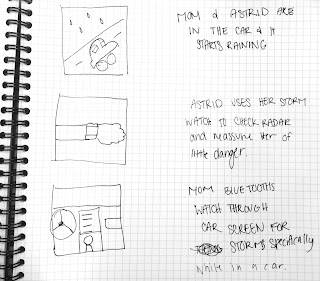 MOM & ASTRID ARE
IN THE CAR & IT
STARTS RAINING
ASTRID USES HER STORM
WATCH TO CHECK RADAR
and reassure her of
little danger.
MOM BLUETOOTHS
WATCH THROUGH
CAR SCREEN FOR
STORMS specifically
while in a car.